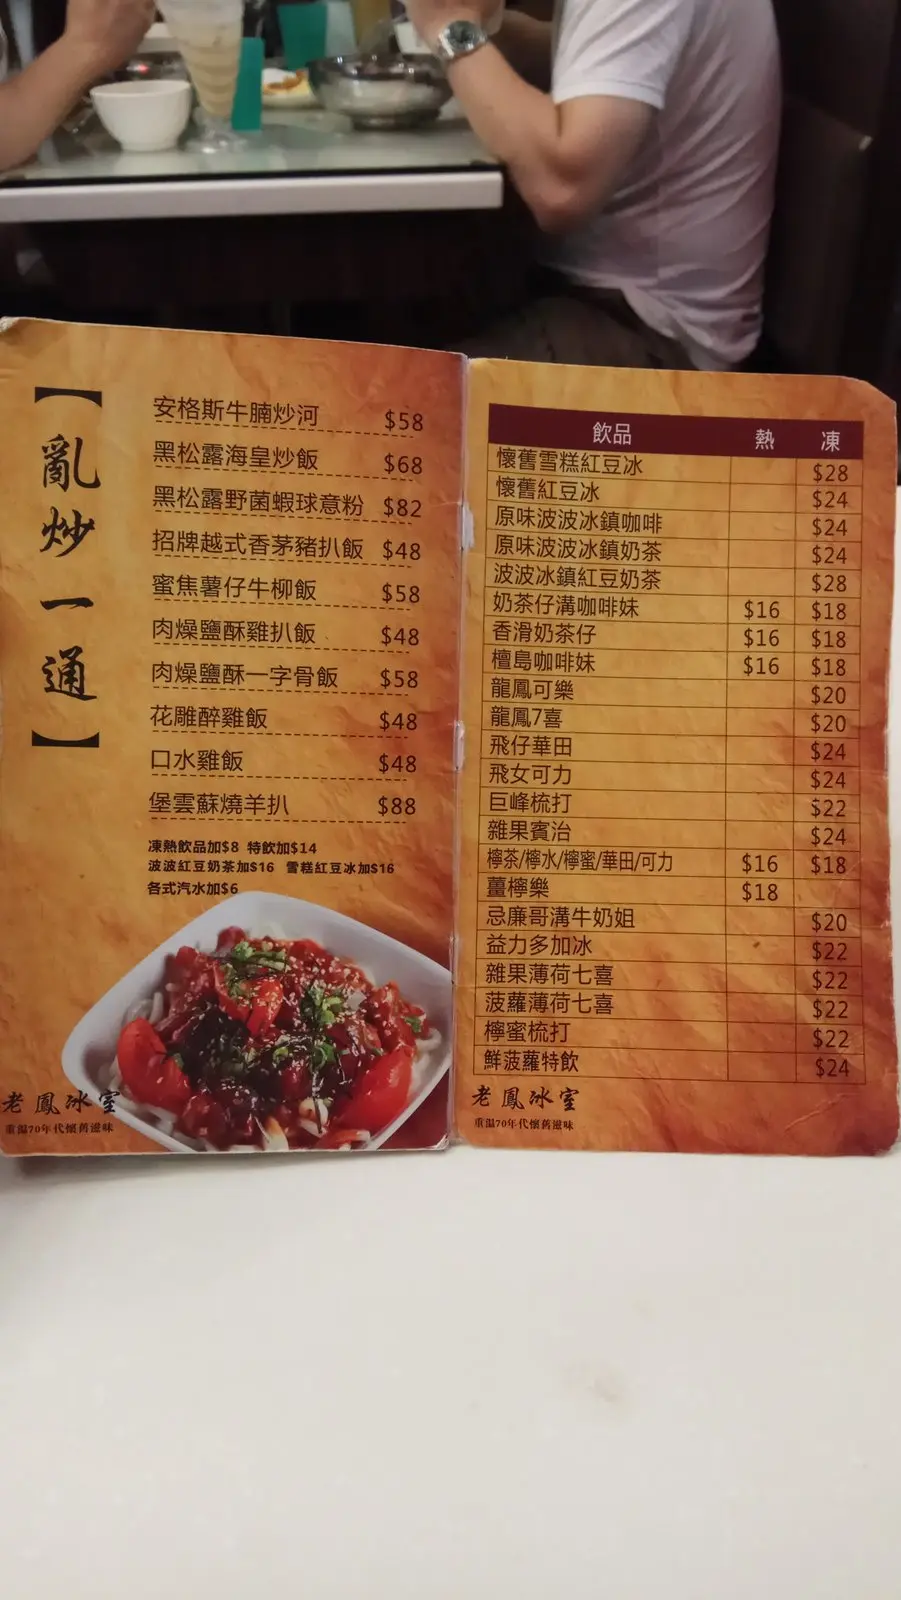 【亂炒一通】
安格斯牛腩炒河 $58
黑松露海皇炒飯 $68
黑松露野菌蝦球意粉 $82
招牌越式香茅豬扒飯 $48
蜜焦薯仔牛柳飯 $58
肉燥鹽酥雞扒飯 $48
肉燥鹽酥一字骨飯 $58
花雕醉雞飯 $48
口水雞飯 $48
堡雲蘇燒羊扒 $88
凍熱飲品加$8 特飲加$14
波波紅豆奶茶加$16 雪糕紅豆冰加$16
各式汽水加$6
老鳳冰室
重溫70年代懷舊滋味
飲品 熱 凍
懷舊雪糕紅豆冰 $28
懷舊紅豆冰 $24
原味波波冰鎮咖啡 $24
原味波波冰鎮奶茶 $24
波波冰鎮紅豆奶茶 $28
奶茶仔溝咖啡妹 $16 $18
香滑奶茶仔 $16 $18
檀島咖啡妹 $16 $18
龍鳳可樂 $20
龍鳳7喜 $20
飛仔華田 $24
飛女可力 $24
巨峰梳打 $22
雜果賓治 $24
檸茶/檸水/檸蜜/華田/可力 $16 $18
薑檸樂 $18
忌廉哥溝牛奶姐 $20
益力多加冰 $22
雜果薄荷七喜 $22
菠蘿薄荷七喜 $22
檸蜜梳打 $22
鮮菠蘿特飲 $24
老鳳冰室
重溫70年代懷舊滋味